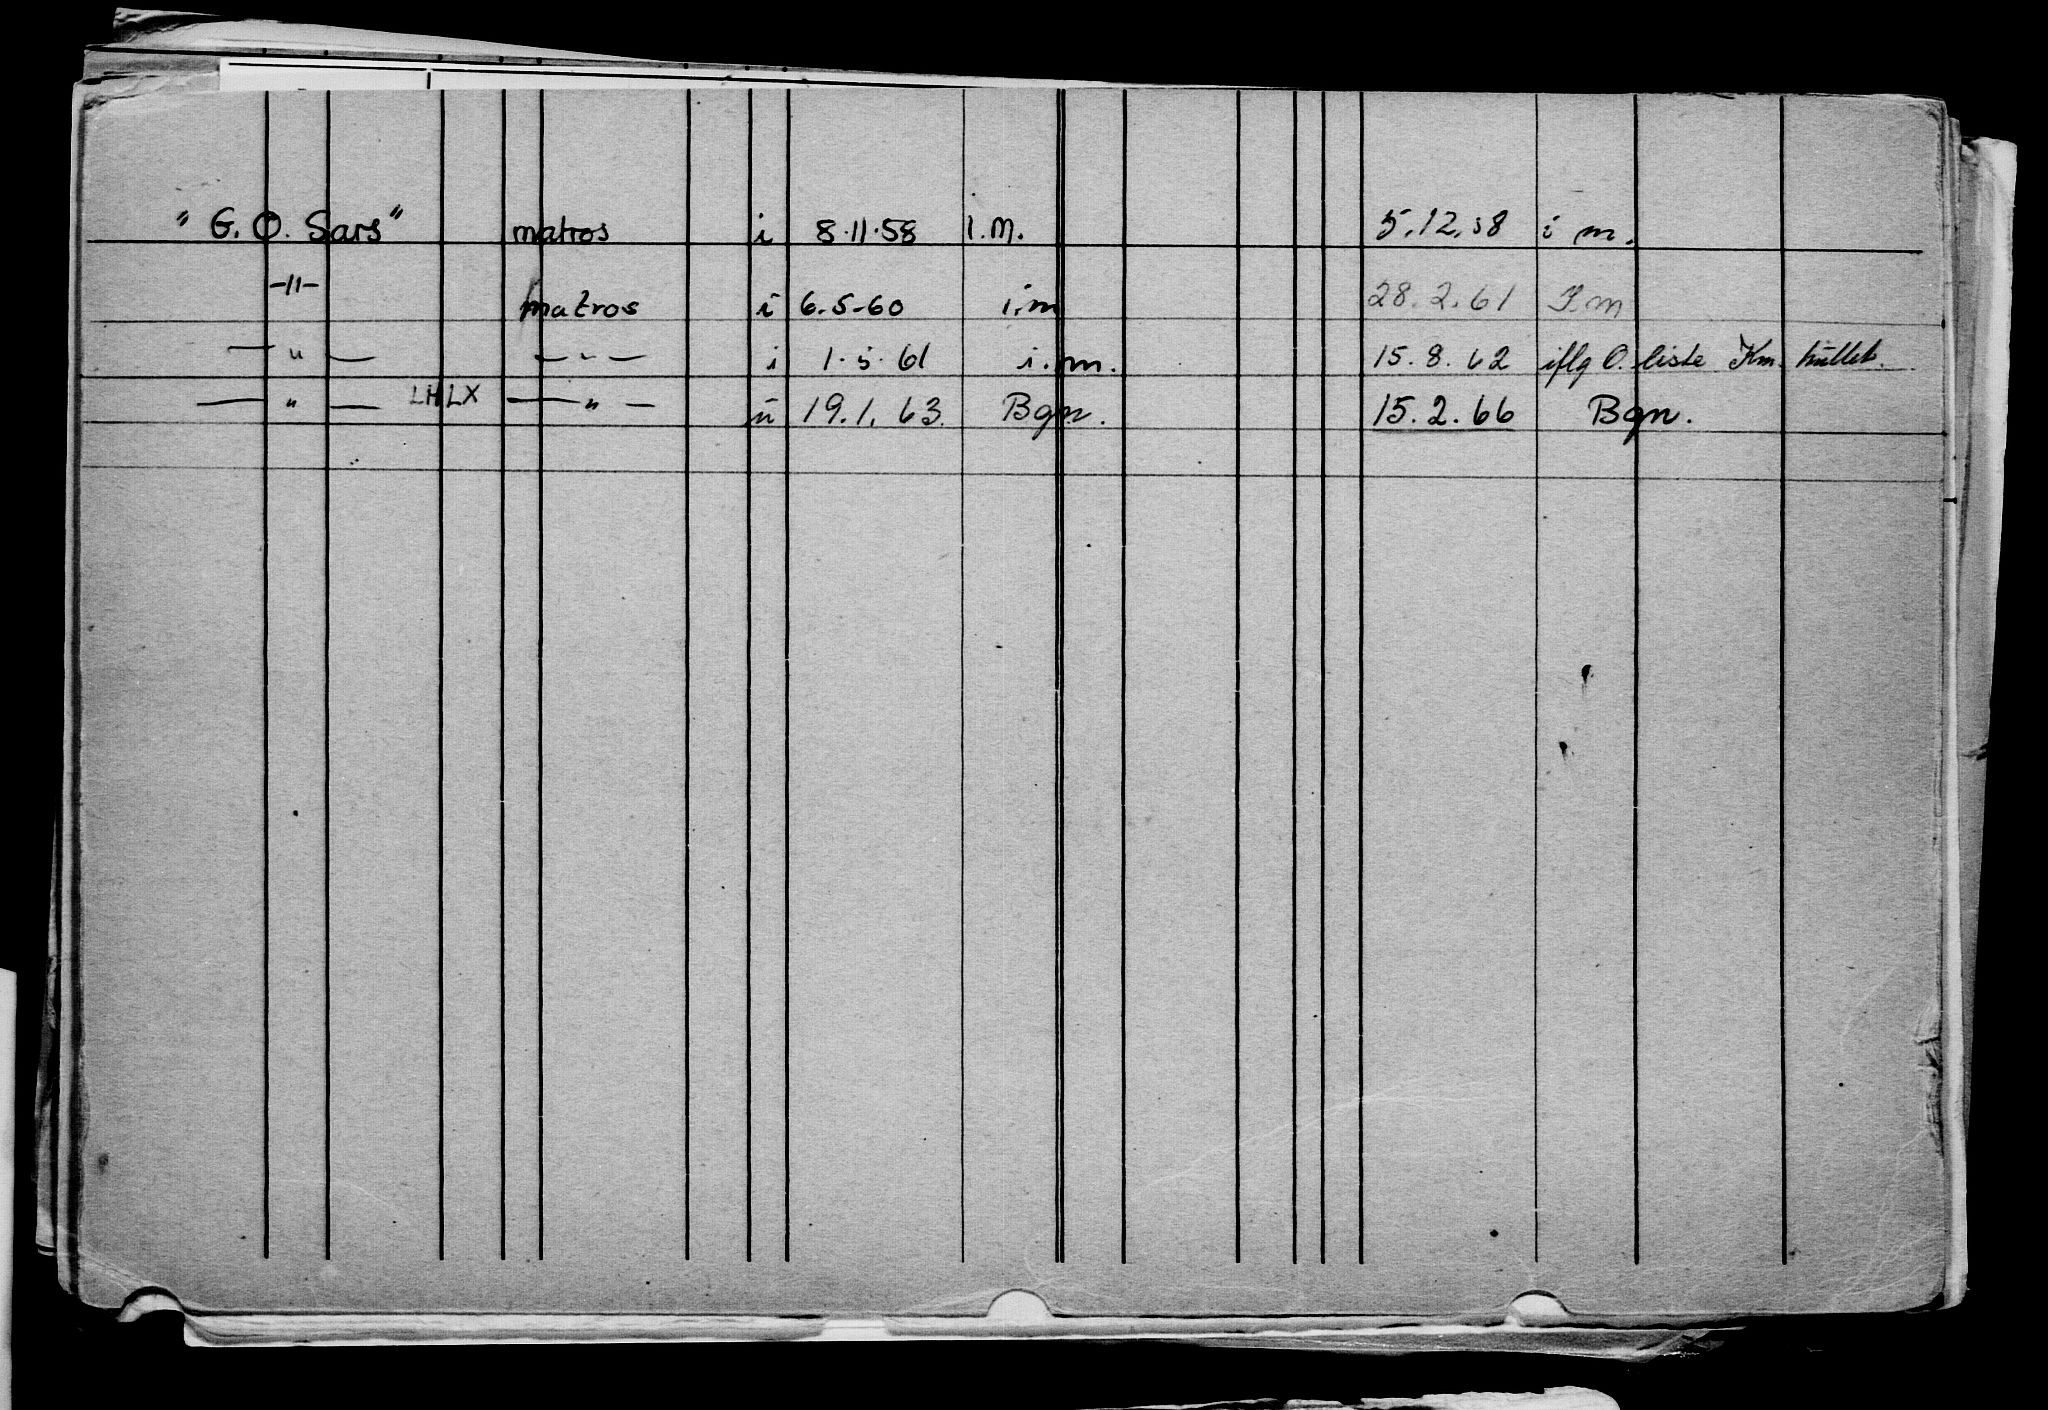 "G. O. Sars" matros i 8.11.58 I.M. 5.12.58 i m.
-11- matros i 6.5-60 i.m 28.2.61 I.m
— " — — " — i 1.5.61 i.m. 15.8.62 iflg O. liste Km.
— " — LHLX — " — u 19.1.63. Bgn. 15.2.66 Bgn.